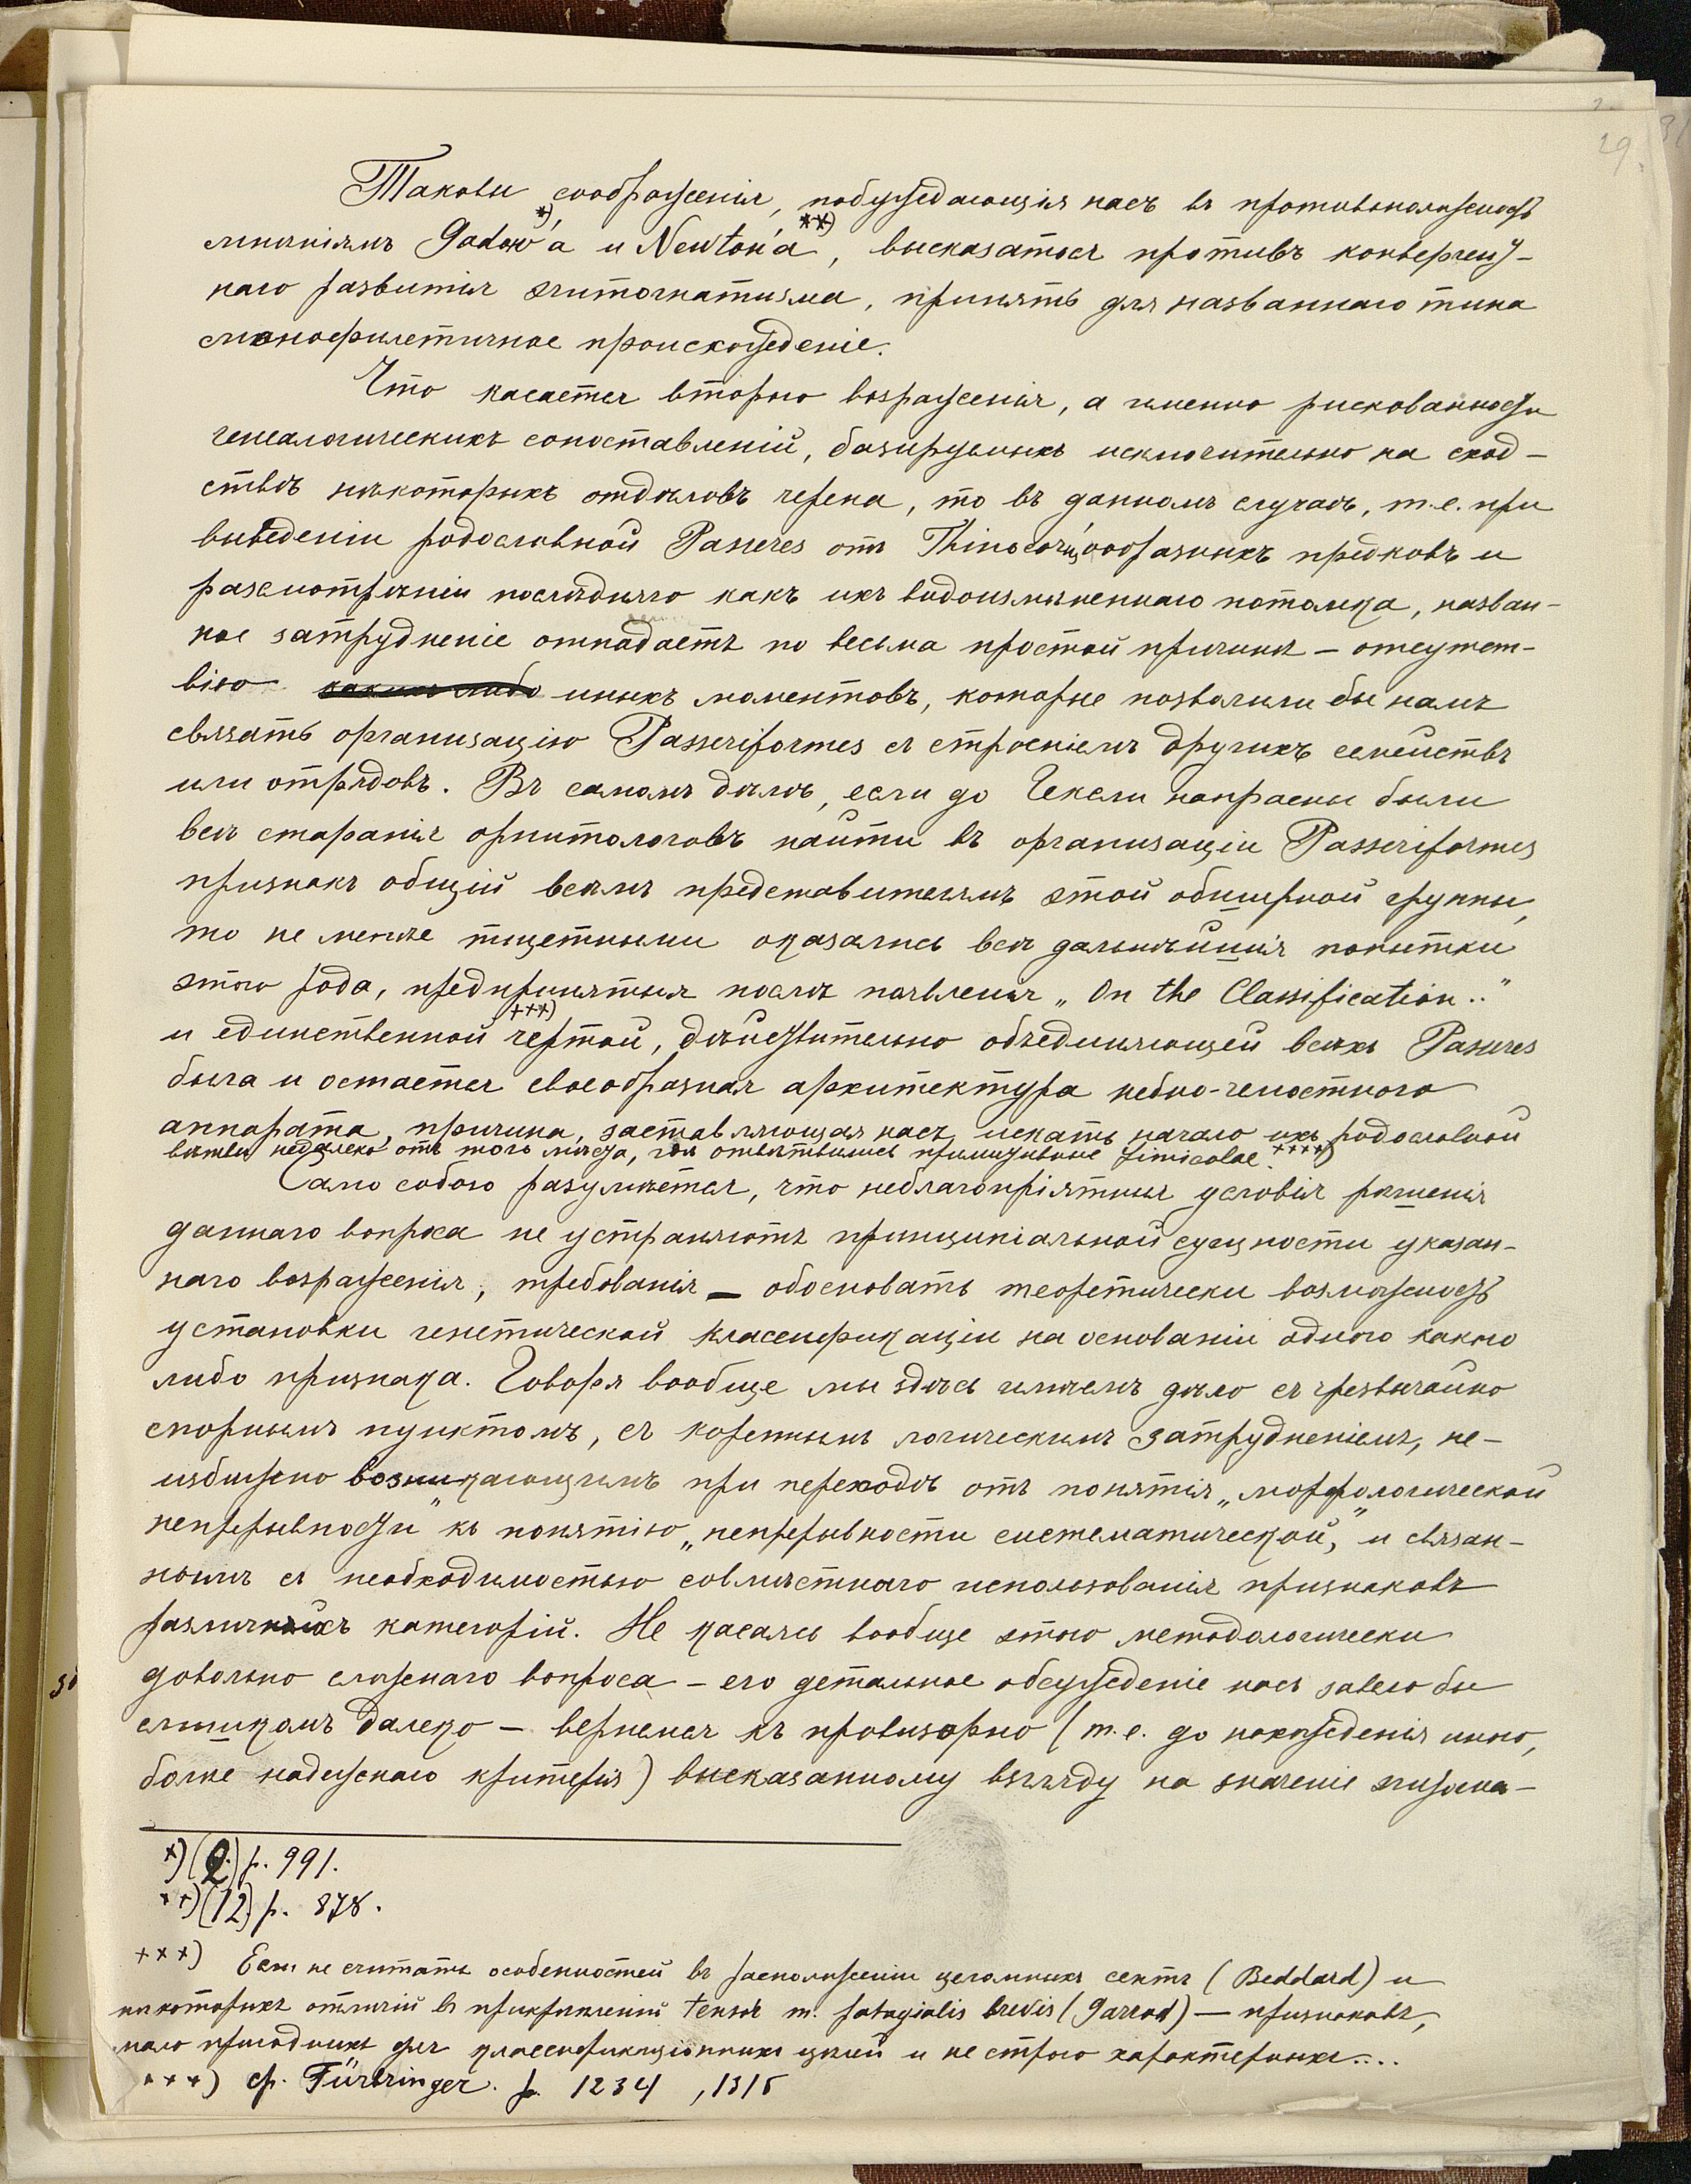 29.
Таковы соображенія, побуждающія насъ въ противоположность
мнѣніямъ Gadow'a *) и Newton'a **), высказаться противъ конвергент-
наго развитія эгитогнатизма, принять для названнаго типа
монофилетичное происхожденіе.
Что касается второго возраженія, а именно рискованности
генеалогическихъ сопоставленій, базируемыхъ исключительно на сход-
ствѣ нѣкоторыхъ отдѣловъ черепа, то въ данномъ случаѣ, т.е. при
выведеніи родословной Passeres отъ Thinocoryобразныхъ предковъ и
разсмотрѣніи послѣдняго какъ ихъ видоизмѣненнаго потомка, назван-
ное затрудненіе отпадаетъ по весьма простой причинѣ – отсутст-
вію иныхъ моментовъ, которые позволили бы намъ
связать организацію Passeriformes съ строеніемъ другихъ семействъ
или отрядовъ. Въ самомъ дѣлѣ, если до Гексли напрасны были
всѣ старанія орнитологовъ найти въ организаціи Passeriformes
признакъ общій всѣмъ представителямъ этой обширной группы,
то не менѣе тщетными оказались всѣ дальнѣйшія попытки
этого рода, предпринятыя послѣ появленія „On the Classification.."
и единственной чертой +++), дѣйствительно объединяющей всѣхъ Passeres
была и остается своеобразная архитектура небно-челюстного
аппарата, причина, заставляющая насъ искать начало ихъ родословной
вѣтви недалеко отъ того мѣста, гдѣ отвѣтвились примитивные Limicolae. ++++)
Само собою разумѣется, что неблагопріятныя условія рѣшенія
даннаго вопроса не устраняютъ принципіальной сущности указан-
наго возраженія, требованія – обосновать теоретически возможность
установки генетической классификаціи на основаніи одного какого
либо признака. Говоря вообще мы здѣсь имѣемъ дѣло съ чрезвычайно
спорнымъ пунктомъ, съ кореннымъ логическимъ затрудненіемъ, не-
избѣжно возникающимъ при переходѣ отъ понятія „морфологической
непрерывности" къ понятію „непрерывности систематической," и связан-
нымъ съ необходимостью совмѣстнаго использованія признаковъ
различныхъ категорій. Не касаясь вообще этого методологически
довольно сложнаго вопроса – его детальное обсужденіе насъ завело бы
слишкомъ далеко – вернемся къ провизорно (т.е. до нахожденія иного,
болѣе надежнаго критерія) высказанному взгляду на значеніе
*) (2) p. 991.
**) (12) p. 878.
+++) Если не считать особенностей въ расположеніи септъ (Beddard) и
нѣкоторыхъ отличій въ прикрѣпленіи tensor m. patagialis brevis (Garrod) – признаковъ,
мало пригодныхъ для классификаціонныхъ цѣлей и не строго характерныхъ....
+++) ср. Fürbringer. p. 1234, 1315